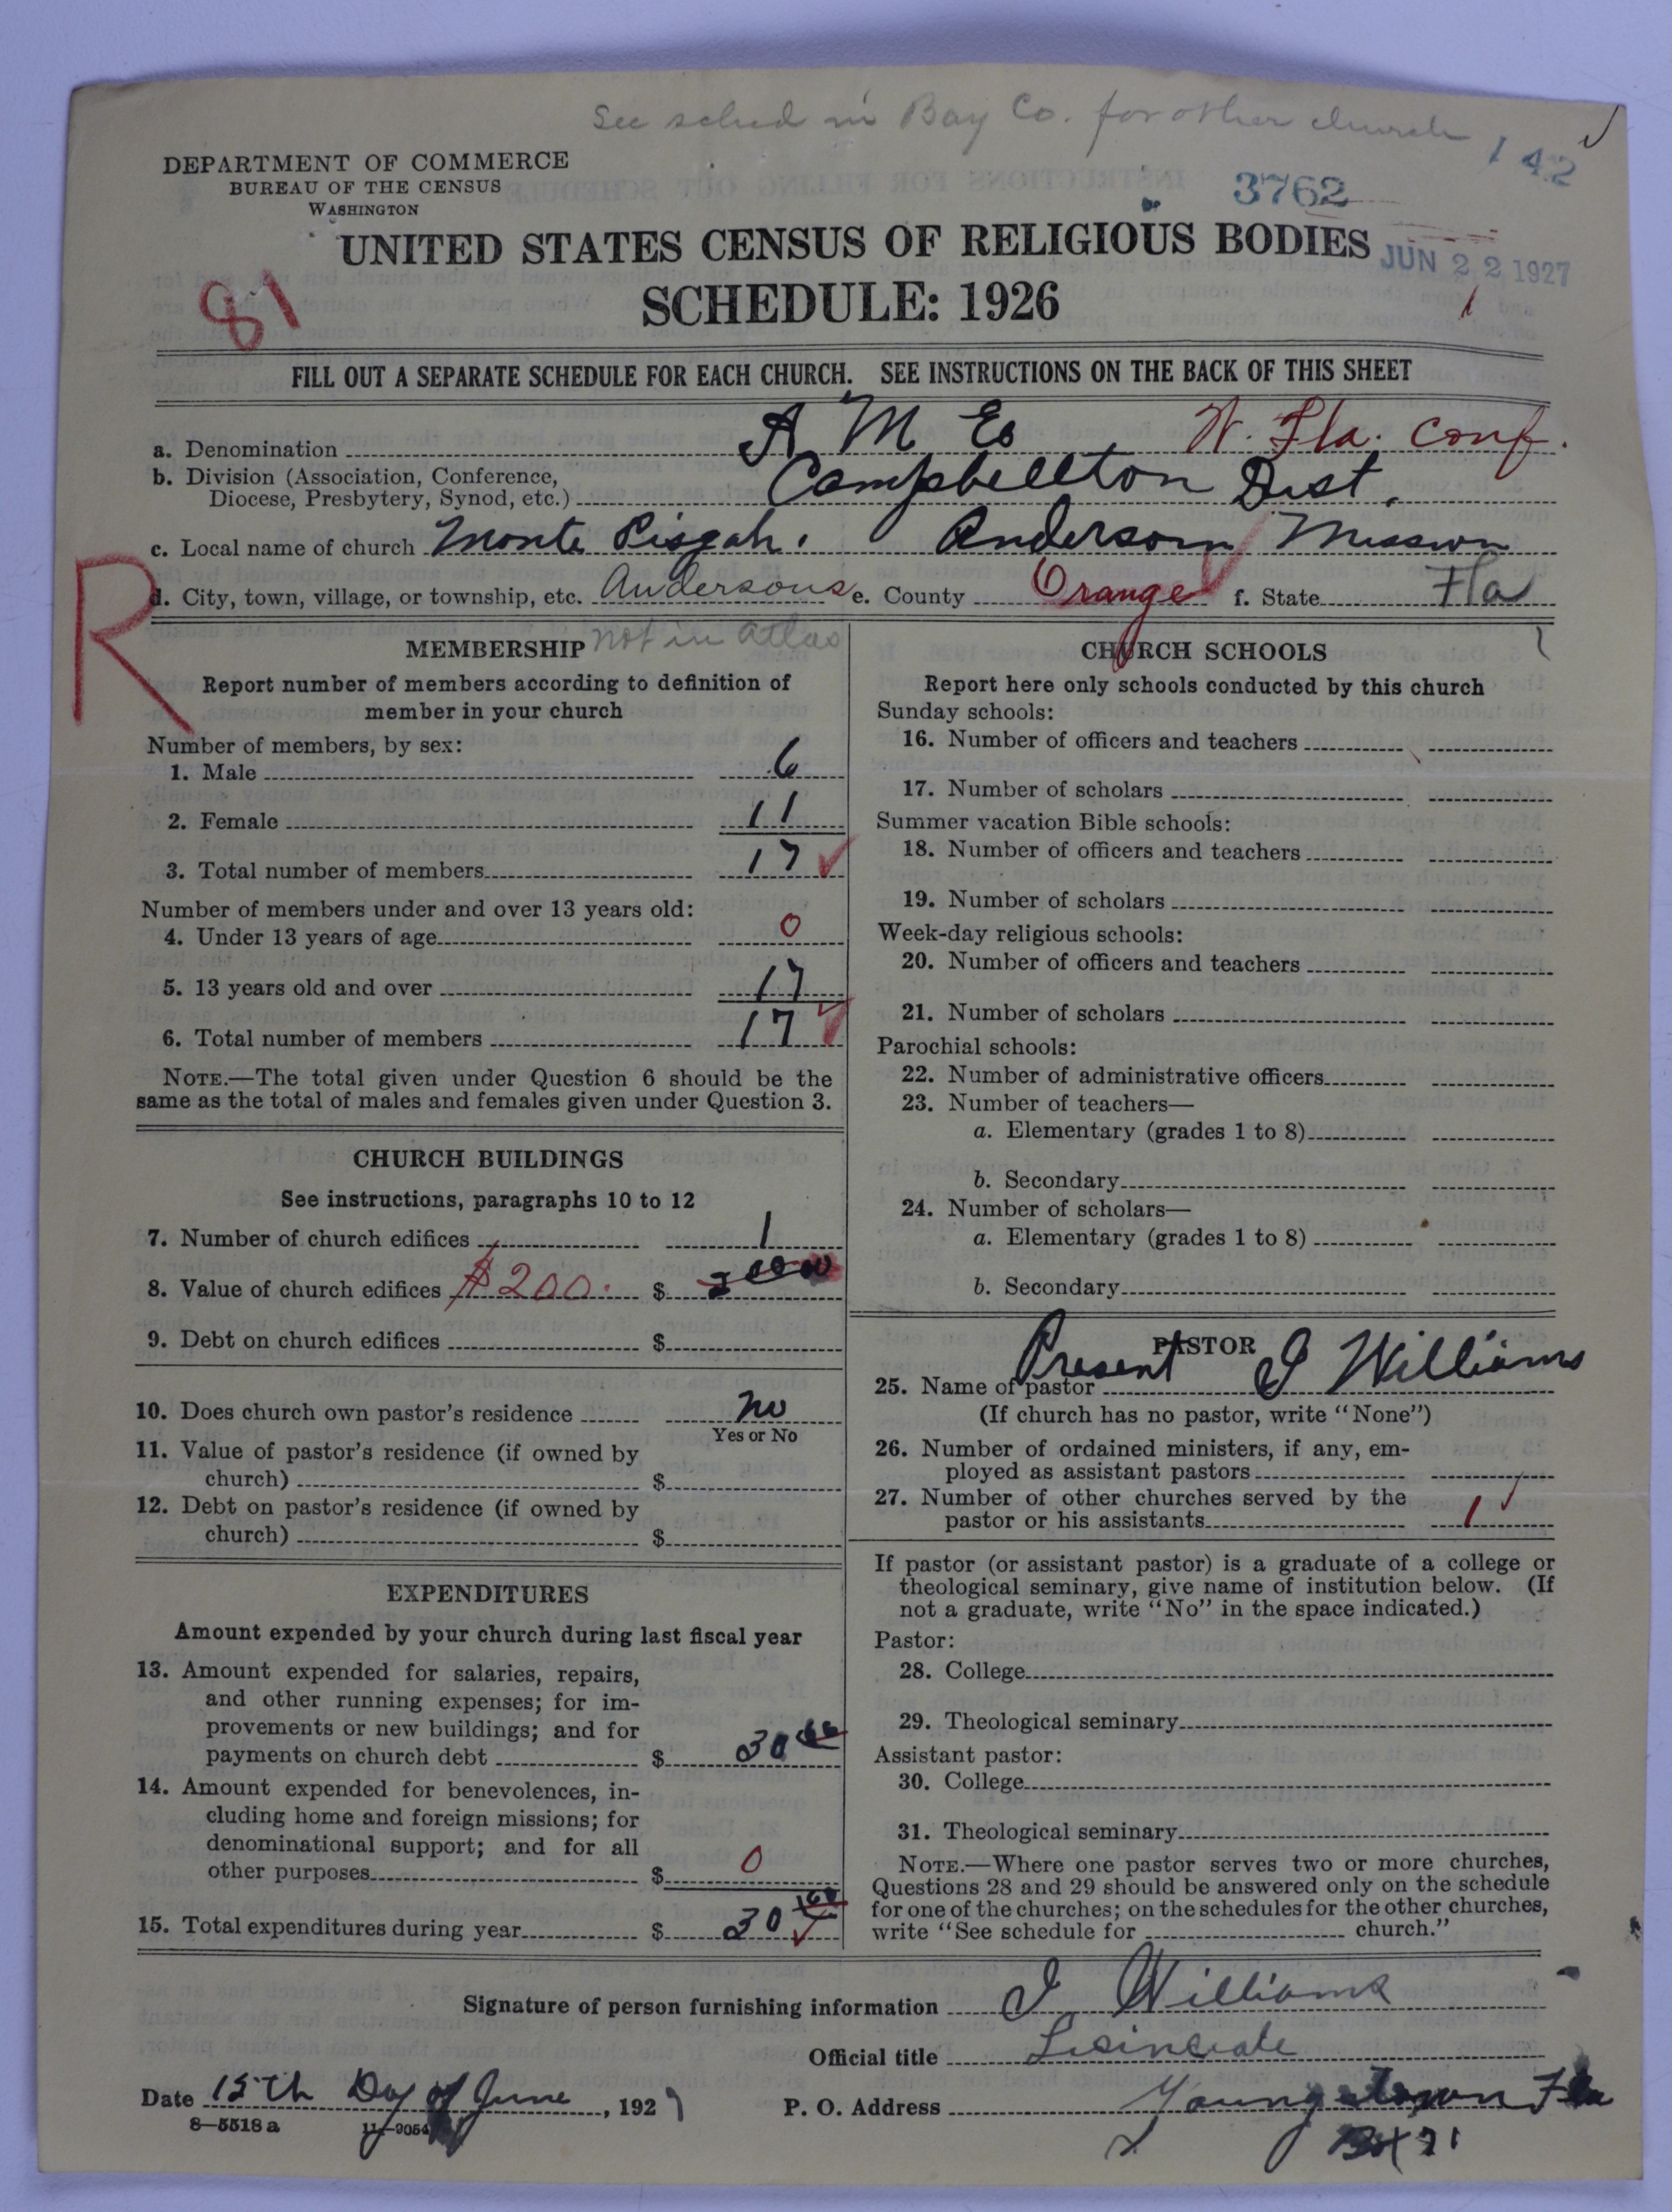 See sched in Bay Co. for other church
142
DEPARTMENT OF COMMERCE
BUREAU OF THE CENSUS
WASHINGTON
3762
UNITED STATES CENSUS OF RELIGIOUS BODIES
JUN 22 1927
SCHEDULE: 1926
81
1
FILL OUT A SEPARATE SCHEDULE FOR EACH CHURCH. SEE INSTRUCTIONS ON THE BACK OF THIS SHEET
a. Denomination A M E W. Fla. Conf.
b. Division (Association, Conference,
Diocese, Presbytery, Synod, etc.) Campbellton Dist.
c. Local name of church Monte Pisgah. Anderson Mission
d. City, town, village, or township, etc. Andersons e. County Orange f. State Fla
R
MEMBERSHIP not in atlas
Report number of members according to definition of
member in your church
Number of members, by sex:
1. Male 6
2. Female 11
3. Total number of members 17
Number of members under and over 13 years old:
4. Under 13 years of age 0
5. 13 years old and over 17
6. Total number of members 17
NOTE.—The total given under Question 6 should be the
same as the total of males and females given under Question 3.
CHURCH BUILDINGS
See instructions, paragraphs 10 to 12
7. Number of church edifices 1
8. Value of church edifices $200. $
9. Debt on church edifices $
10. Does church own pastor's residence no
Yes or No
11. Value of pastor's residence (if owned by
church) $
12. Debt on pastor's residence (if owned by
church) $
EXPENDITURES
Amount expended by your church during last fiscal year
13. Amount expended for salaries, repairs,
and other running expenses; for im-
provements or new buildings; and for
payments on church debt $ 30
14. Amount expended for benevolences, in-
cluding home and foreign missions; for
denominational support; and for all
other purposes $ 0
15. Total expenditures during year $ 30
CHURCH SCHOOLS
Report here only schools conducted by this church
Sunday schools:
16. Number of officers and teachers
17. Number of scholars
Summer vacation Bible schools:
18. Number of officers and teachers
19. Number of scholars
Week-day religious schools:
20. Number of officers and teachers
21. Number of scholars
Parochial schools:
22. Number of administrative officers
23. Number of teachers—
a. Elementary (grades 1 to 8)
b. Secondary
24. Number of scholars—
a. Elementary (grades 1 to 8)
b. Secondary
PASTOR
25. Name of pastor Present I Williams
(If church has no pastor, write "None")
26. Number of ordained ministers, if any, em-
ployed as assistant pastors
27. Number of other churches served by the
pastor or his assistants 1
If pastor (or assistant pastor) is a graduate of a college or
theological seminary, give name of institution below. (If
not a graduate, write "No" in the space indicated.)
Pastor:
28. College
29. Theological seminary
Assistant pastor:
30. College
31. Theological seminary
NOTE.—Where one pastor serves two or more churches,
Questions 28 and 29 should be answered only on the schedule
for one of the churches; on the schedules for the other churches,
write "See schedule for church."
Signature of person furnishing information I Williams
Official title Lisinciate
Date 15th Day of June, 1927 P. O. Address Youngstown Fla
8—5518a 11—9054 Box 71